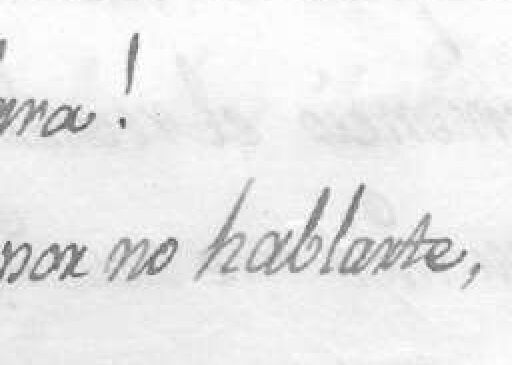 ara!
por no hablarte,